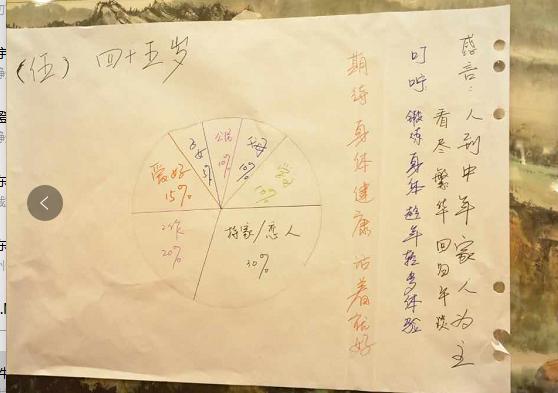 (伍) 四十五岁
感言：人到中年家人为主
看尽繁华回归平淡
叮咛 锻炼身体趁年轻多体验
期待 身体健康活着就好
爱好
15%
子女
5%
公益
10%
父母
10%
10%
将家/恋人
30%
工作
20%